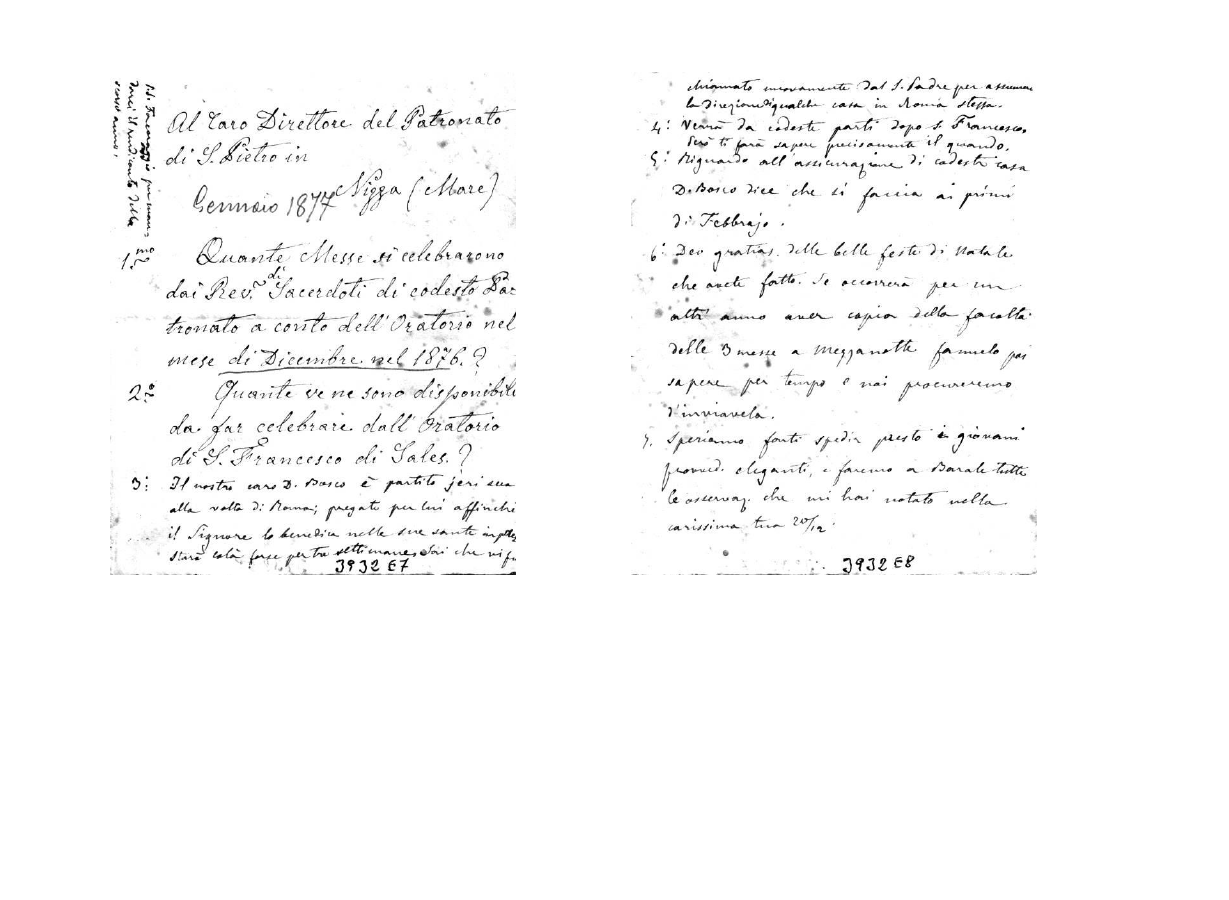 Al Caro Direttore del Patronato
di S. Pietro in
Nizza (Mare)
Gennaio 1877
1.mo Quante Messe si celebrarono
dai Rev. di Sacerdoti di codesto Pa=
tronato a conto dell'Oratorio nel
mese di Dicembre nel 1876.?
2.o Quante ve ne sono disponibili
da far celebrare dall'Oratorio
di S. Francesco di Sales.?
3: Il nostro caro D. Bosco è partito jeri sera
alla volta di Roma; pregate per lui affinchè
il Signore lo benedica nelle sue sante
starà colà forse per tre settimane, che
3932 E7
scorso anno.
chiamato nuovamente dal S. Padre per assumere
la direzione di qualche casa in Roma stessa.
4: Verrà da codeste parti dopo S. Francesco,
Però ti farà sapere precisamente il quando.
5: Riguardo all'assicurazione di codesta casa
D. Bosco dice che si faccia ai primi
di Febbrajo.
6: Deo gratias delle belle feste di Natale
che avete fatto. Se occorrerà per un
altr'anno aver copia della facoltà
delle 3 messe a mezzanotte
sapere per tempo e noi procureremo
d'inviarvela.
7. Speriamo farti spedir presto i giovani
eleganti, e faremo a Barale tutte
le osservaz. che mi hai notato nella
carissima tua 20/12.
3932 E8